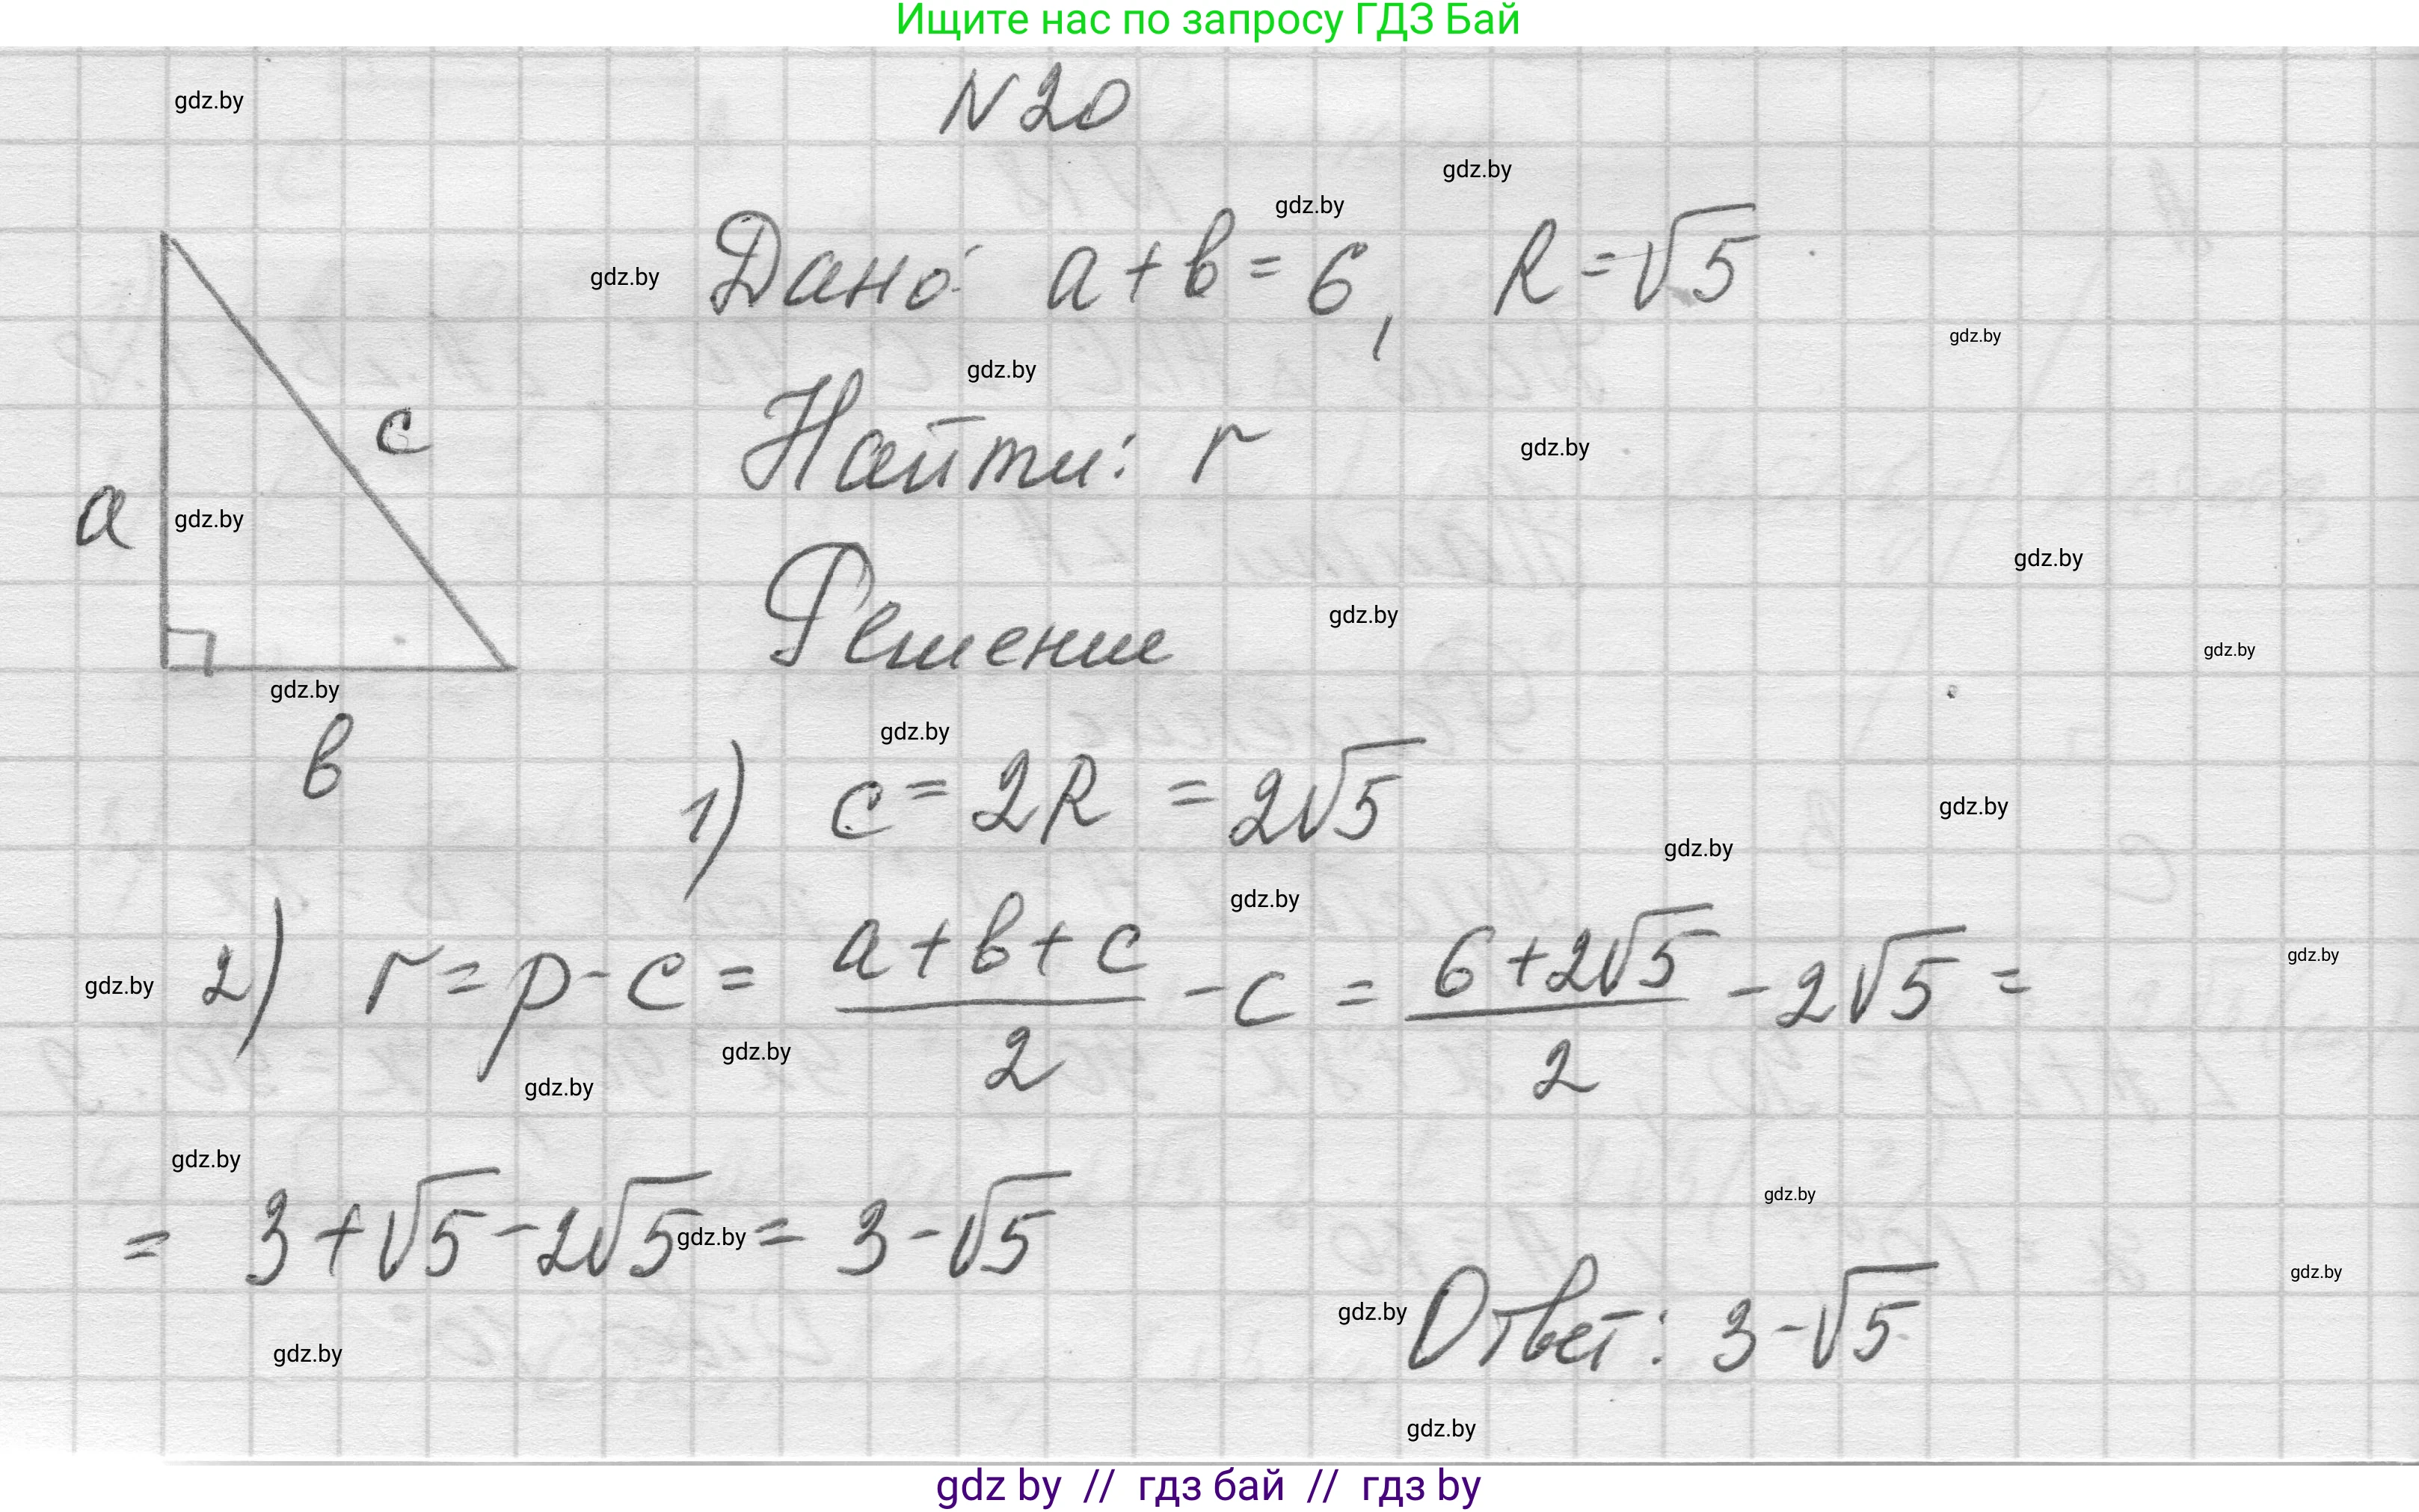 Ищите нас по запросу ГДЗ Бай
N 20
gdz.by
gdz.by
gdz.by
gdz.by
Дано: a + b = 6, R = √5
gdz.by
gdz.by
c
Найти: r
gdz.by
a
gdz.by
gdz.by
Решение
gdz.by
gdz.by
gdz.by
gdz.by
b
1) c = 2R = 2√5
gdz.by
gdz.by
gdz.by
2) r = p - c = (a + b + c)/2 - c = (6 + 2√5)/2 - 2√5 =
gdz.by
gdz.by
gdz.by
gdz.by
gdz.by
gdz.by
= 3 + √5 - 2√5 = 3 - √5
gdz.by
gdz.by
gdz.by
Ответ: 3 - √5
gdz.by
gdz.by
gdz by // гдз бай // гдз by